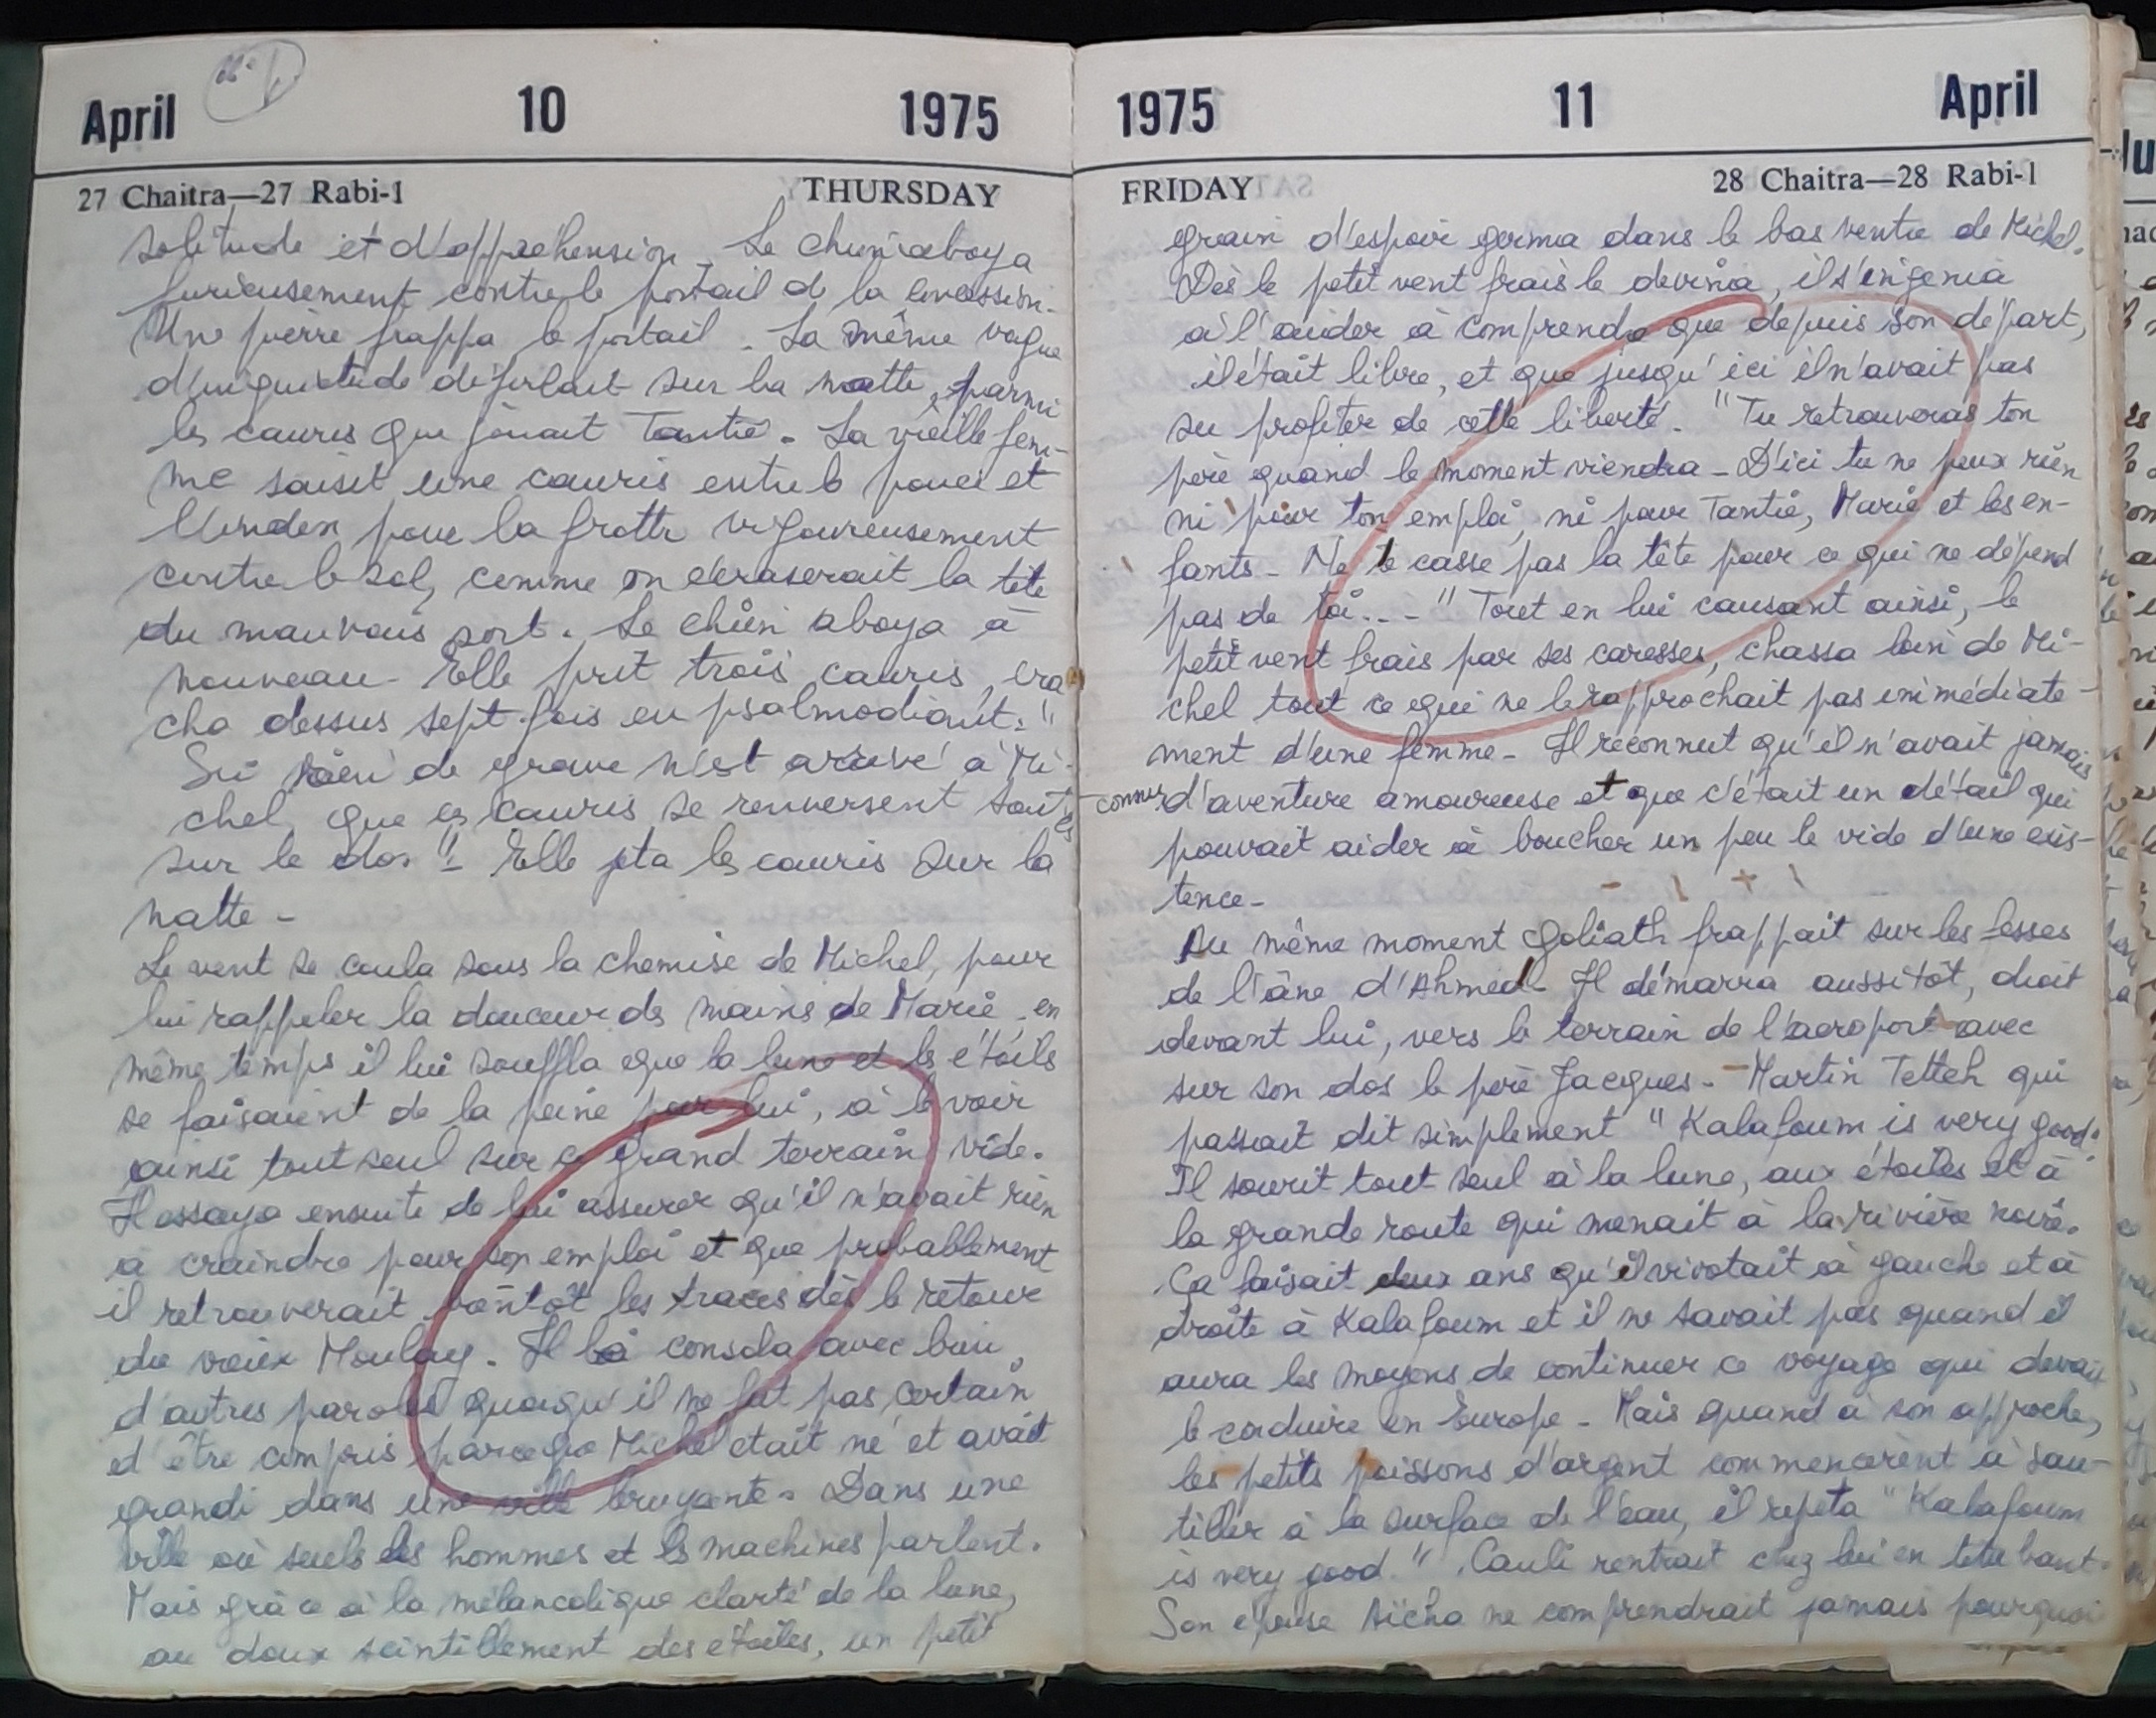 April 10 1975
27 Chaitra—27 Rabi-1 THURSDAY
solitude et d'appréhension. Le chien aboya
furieusement contre le portail de la concession.
Une pierre frappa le portail. La même vague
d'inquietude déferlait sur la natte, parmi
les cauris que jouait Tantie. La vieille fem-
me saisit une cauris entre le pouce et
l'index pour la frotter vigoureusement
contre le sol, comme on écraserait la tête
du mauvais sort. Le chien aboya à
nouveau. Elle prit trois cauris, cra
cha dessus sept fois en psalmodiant: "
Si rien de grave n'est arrivé à Mi-
chel, que ces cauris se renversent toutes
sur le dos". Elle jeta les cauris sur la
natte -
Le vent se coula sous la chemise de Michel, pour
lui rappeler la douceur des mains de Marie, en
même temps il lui souffla que la lune et les étoiles
se faisaient de la peine pour lui, à le voir
ainsi tout seul sur ce grand terrain vide.
Il essaya ensuite de lui assurer qu'il n'avait rien
à craindre pour son emploi et que probablement
il retrouverait bientôt les traces dès le retour
du vieux Moulay. Il le consola avec bien
d'autres paroles quoiqu'il ne fut pas certain
d'être compris parceque Michel était né et avait
grandi dans une ville bruyante. Dans une
ville où seuls les hommes et les machines parlent.
Mais grâce à la mélancolique clarté de la lune,
au doux scintillement des étoiles, un petit
1975 11 April
FRIDAY 28 Chaitra—28 Rabi-1
grain d'espoir germa dans le bas ventre de Michel.
Dès le petit vent frais le devina, il s'ingenia
à l'aider à comprendre que depuis son départ,
il était libre, et que jusqu'ici il n'avait pas
su profiter de cette liberté. "Tu retrouveras ton
père quand le moment viendra - D'ici tu ne peux rien
ni pour ton emploi, ni pour Tantie, Marie et les en-
fants - Ne te casse pas la tête pour ce qui ne dépend
pas de toi... - " Tout en lui causant ainsi, le
petit vent frais par ses caresses, chassa loin de Mi-
chel tout ce qui ne le rapprochait pas immédiate-
ment d'une femme - Il reconnut qu'il n'avait jamais
connu d'aventure amoureuse et que c'était un détail qui
pouvait aider à boucher un peu le vide d'une exis-
tence -
Au même moment Goliath frappait sur les fesses
de l'âne d'Ahmed - Il démarra aussitôt, droit
devant lui, vers le terrain de l'aeroport avec
sur son dos le père Jacques - Martin Tetteh qui
passait dit simplement "Kalafoum is very good".
Il sourit tout seul à la lune, aux étoiles et à
la grande route qui menait à la rivière noire.
Ça faisait deux ans qu'il vivotait à gauche et à
droite à Kalafoum et il ne savait pas quand il
aura les moyens de continuer ce voyage qui devait
le conduire en Europe - Mais quand à son approche,
les petits poissons d'argent commencèrent à sau-
tiller à la surface de l'eau, il repeta "Kalafoum
is very good." rentrait chez lui en titubant.
Son épouse Aïcha ne comprendrait jamais pourquoi